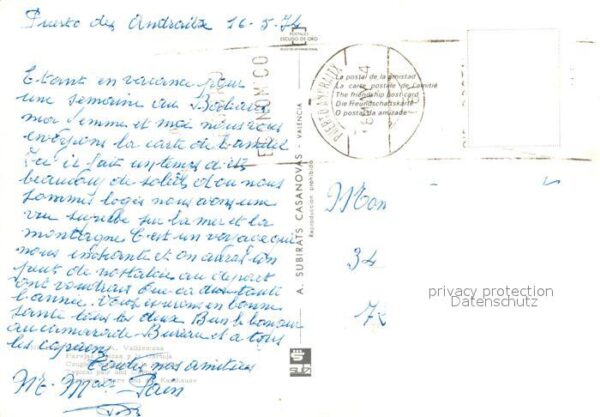 Puerto de Andraitx 16-5-74
Etant en vacance pour
une semaine au Baléares
ma femme et moi nous vous
envoyons la carte de l'amitié
Ici il fait un temps d'été
beaucoup de soleil d'ou nous
sommes logés nous avons une
vue superbe sur la mer et la
montagne C'est un voyage qui
nous enchante et on aura un
peut de nostalgie au départ
ont voudrais que ca dure toute
l'année. Vous en bonne
santé tous les deux Bien le bonjour
au camarade Bureau et a tous
les copains
Toutes nos amitiés
Mr. Mme Pain
POSTALES
ESCUDO DE ORO
A. SUBIRATS CASANOVAS - VALENCIA
Reproducción prohibida
La postal de la amistad
La carte postale de l'amitié
The friendship post-card
Die Freundschaftskarte
O postal da amizade
Mon
34
72
privacy protection
Datenschutz